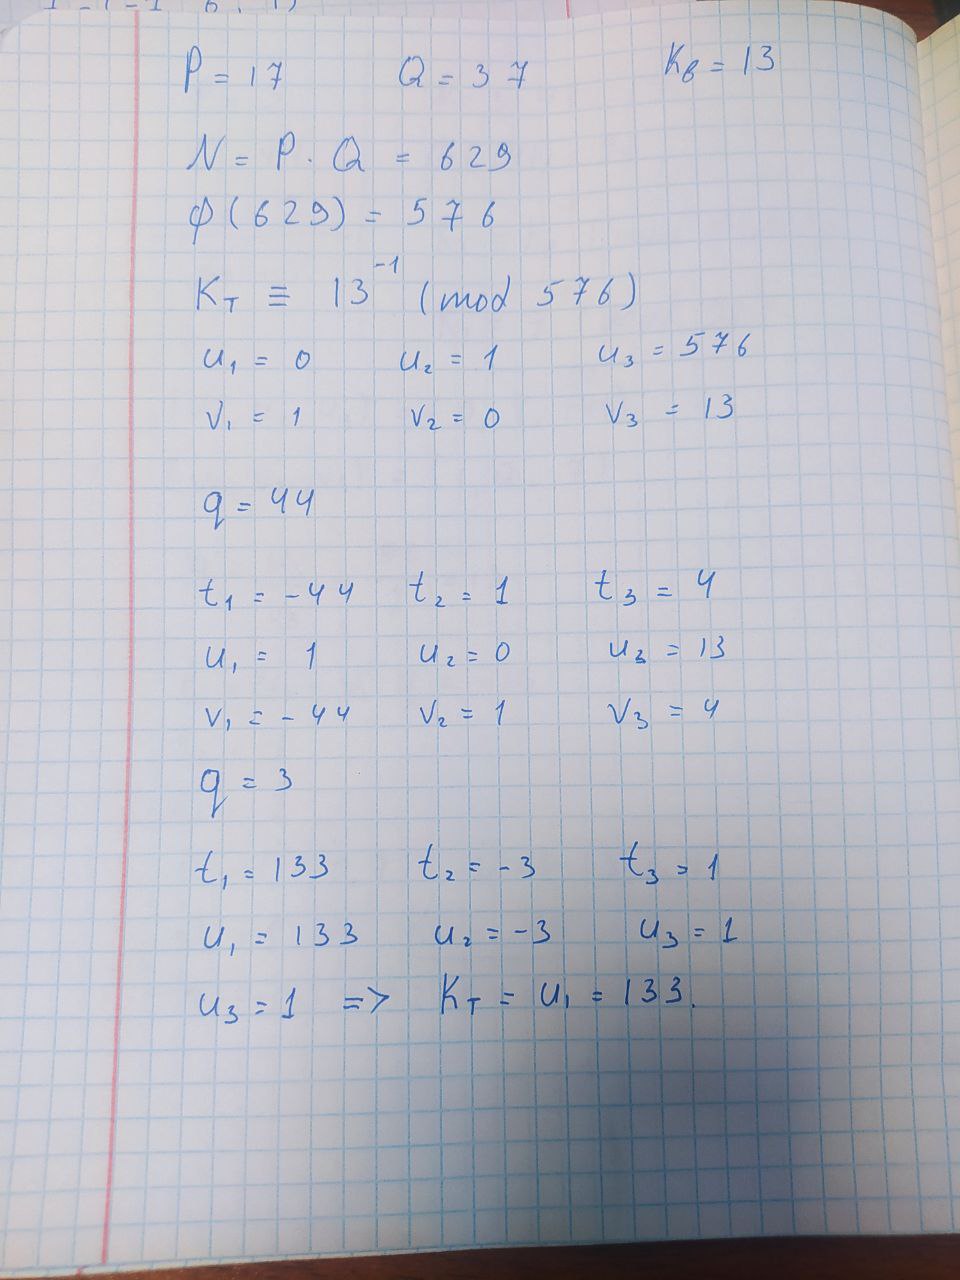 P = 17 Q = 37 Kв = 13
N = P · Q = 629
φ(629) = 576
Kт ≡ 13⁻¹ (mod 576)
u₁ = 0 u₂ = 1 u₃ = 576
v₁ = 1 v₂ = 0 v₃ = 13
q = 44
t₁ = -44 t₂ = 1 t₃ = 4
u₁ = 1 u₂ = 0 u₃ = 13
v₁ = -44 v₂ = 1 v₃ = 4
q = 3
t₁ = 133 t₂ = -3 t₃ = 1
u₁ = 133 u₂ = -3 u₃ = 1
u₃ = 1 => Kт = u₁ = 133.